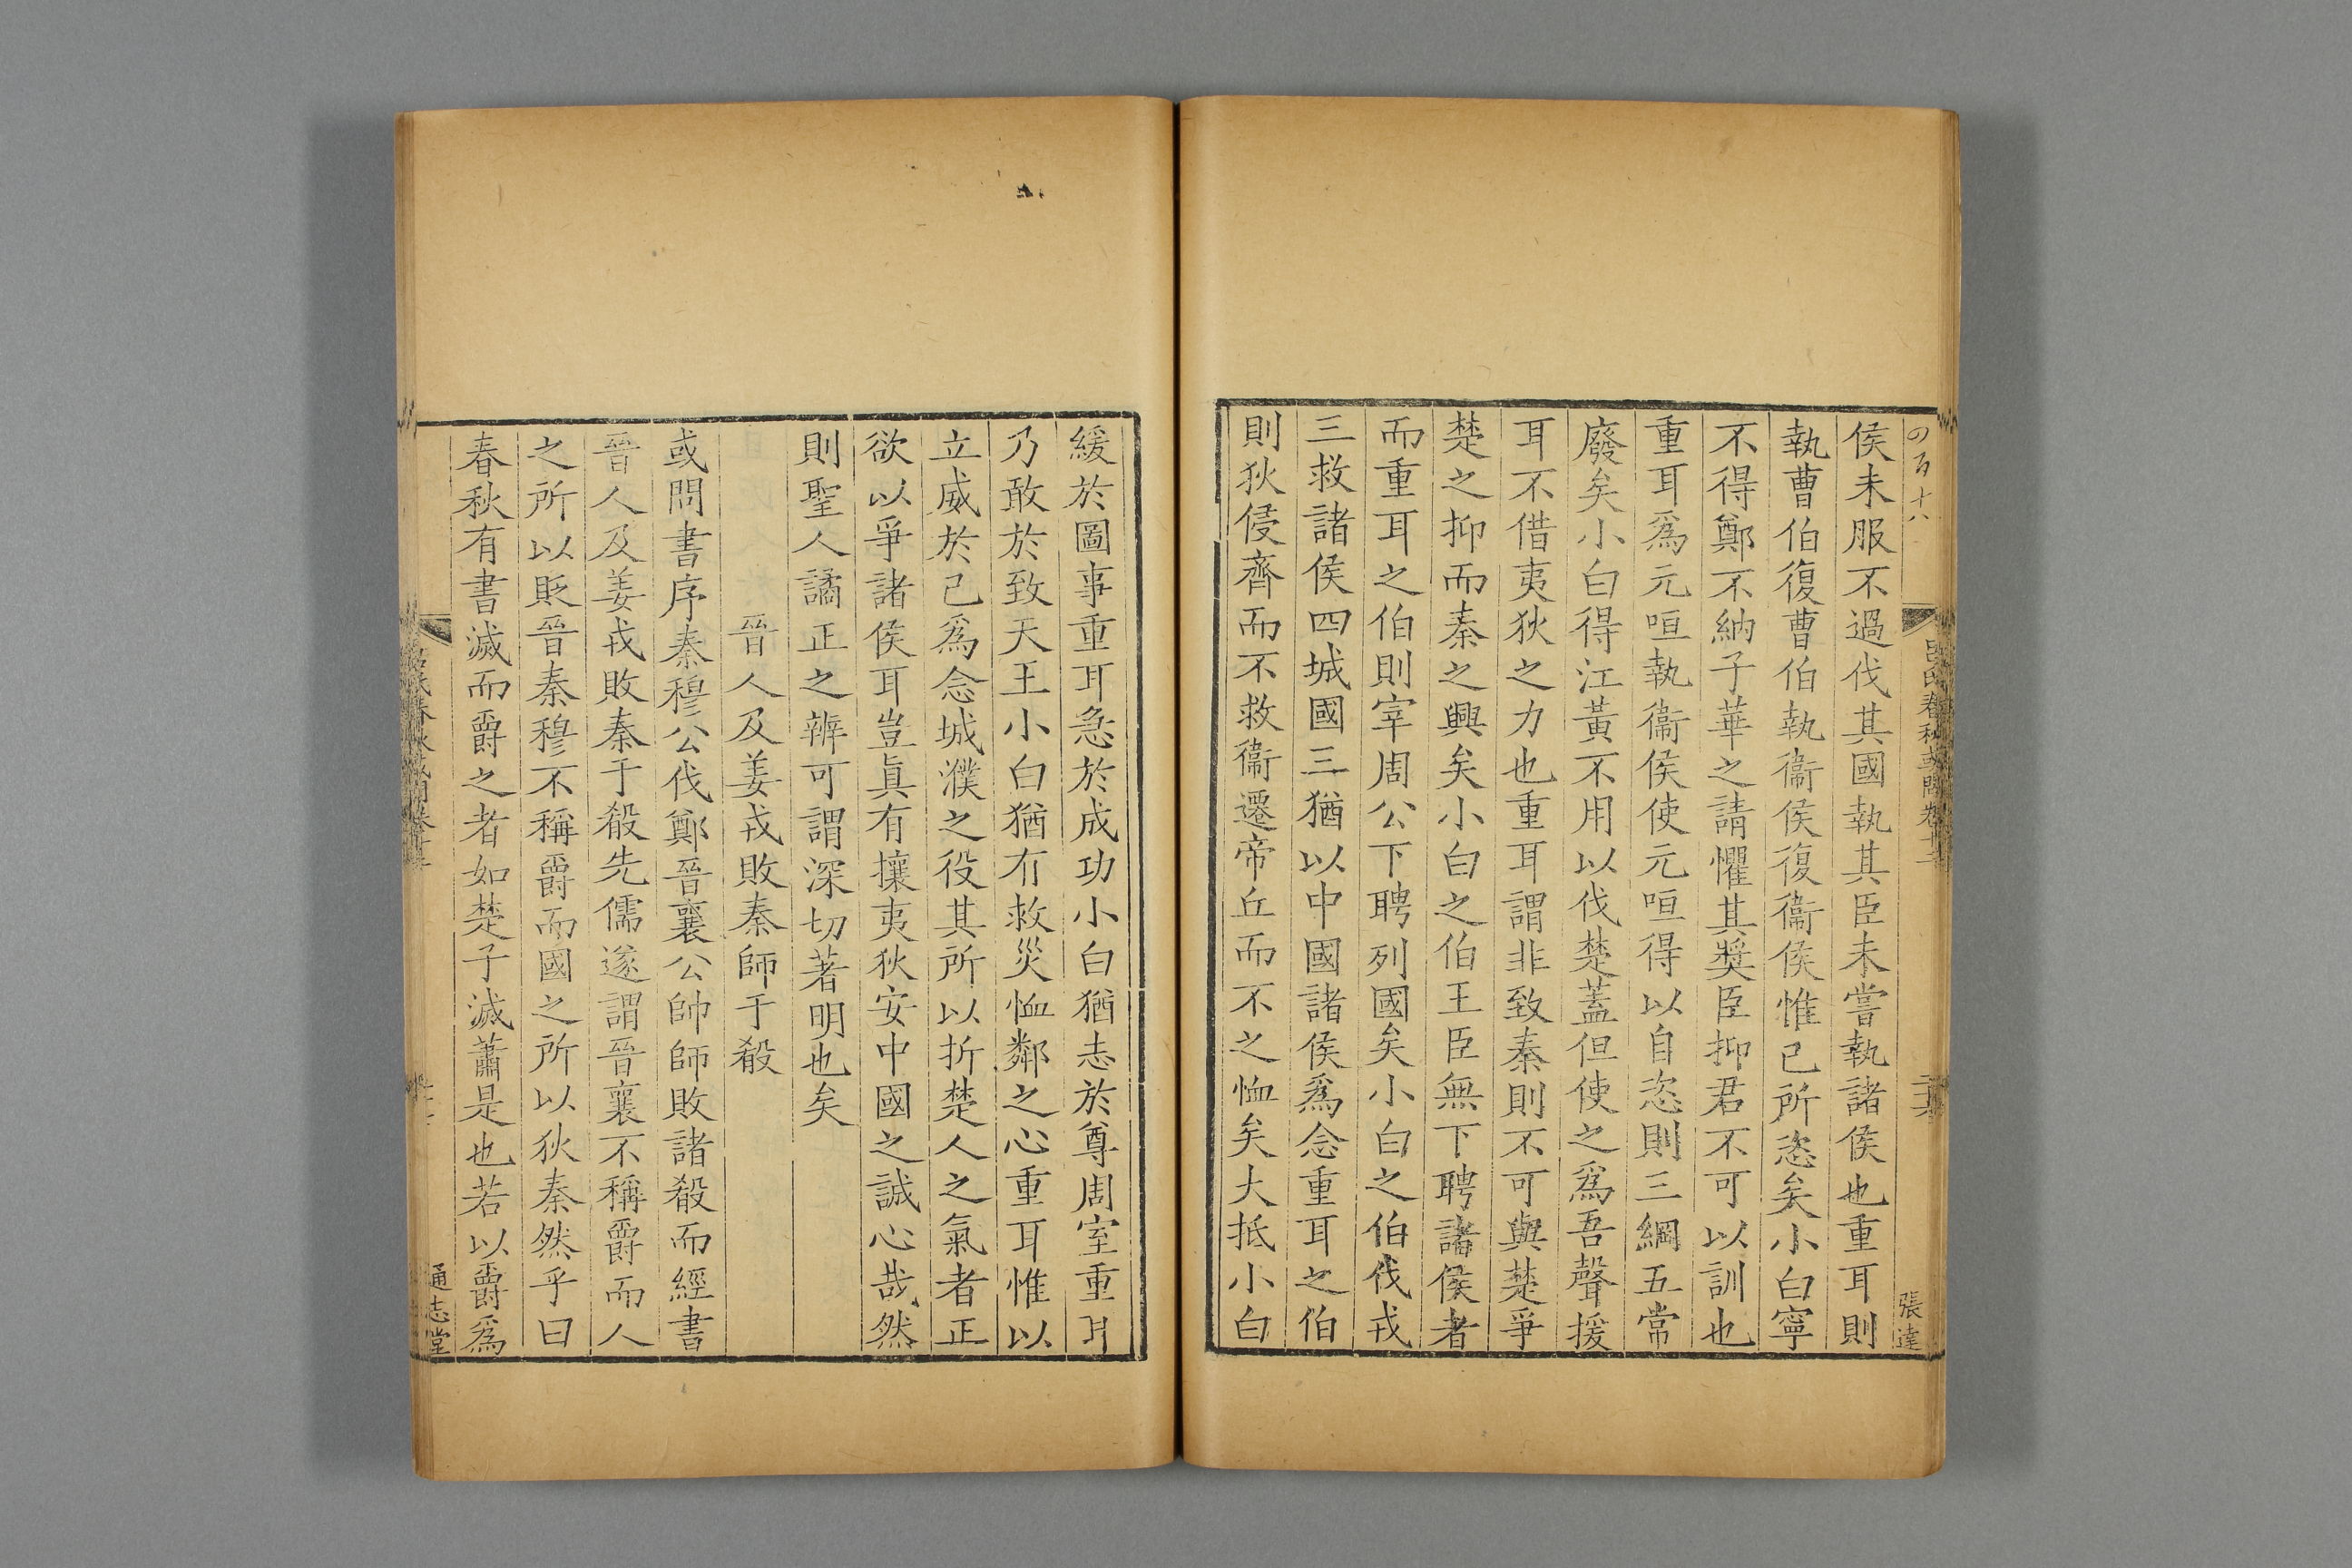 四百十八
呂氏春秋或問卷十二
張達
侯未服不過伐其國執其臣未嘗執諸侯也重耳則
執曹伯復曹伯執衞侯復衞侯惟己所恣矣小白寧
不得鄭不納子華之請懼其奬臣抑君不可以訓也
重耳爲元咺執衞侯使元咺得以自恣則三綱五常
廢矣小白得江黃不用以伐楚蓋但使之爲吾聲援
耳不借夷狄之力也重耳謂非致秦則不可與楚爭
楚之抑而秦之興矣小白之伯王臣無下聘諸侯者
而重耳之伯則宰周公下聘列國矣小白之伯伐戎
三救諸侯四城國三猶以中國諸侯爲念重耳之伯
則狄侵齊而不救衞遷帝丘而不之恤矣大抵小白
緩於圖事重耳急於成功小白猶志於尊周室重耳
乃敢於致天王小白猶有救災恤鄰之心重耳惟以
立威於己爲念城濮之役其所以折楚人之氣者正
欲以爭諸侯耳豈眞有攘夷狄安中國之誠心哉然
則聖人譎正之辨可謂深切著明也矣
晉人及姜戎敗秦師于殽
或問書序秦穆公伐鄭晉襄公帥師敗諸殽而經書
晉人及姜戎敗秦于殽先儒遂謂晉襄不稱爵而人
之所以貶晉秦穆不稱爵而國之所以狄秦然乎曰
春秋有書滅而爵之者如楚子滅蕭是也若以爵爲
通志堂